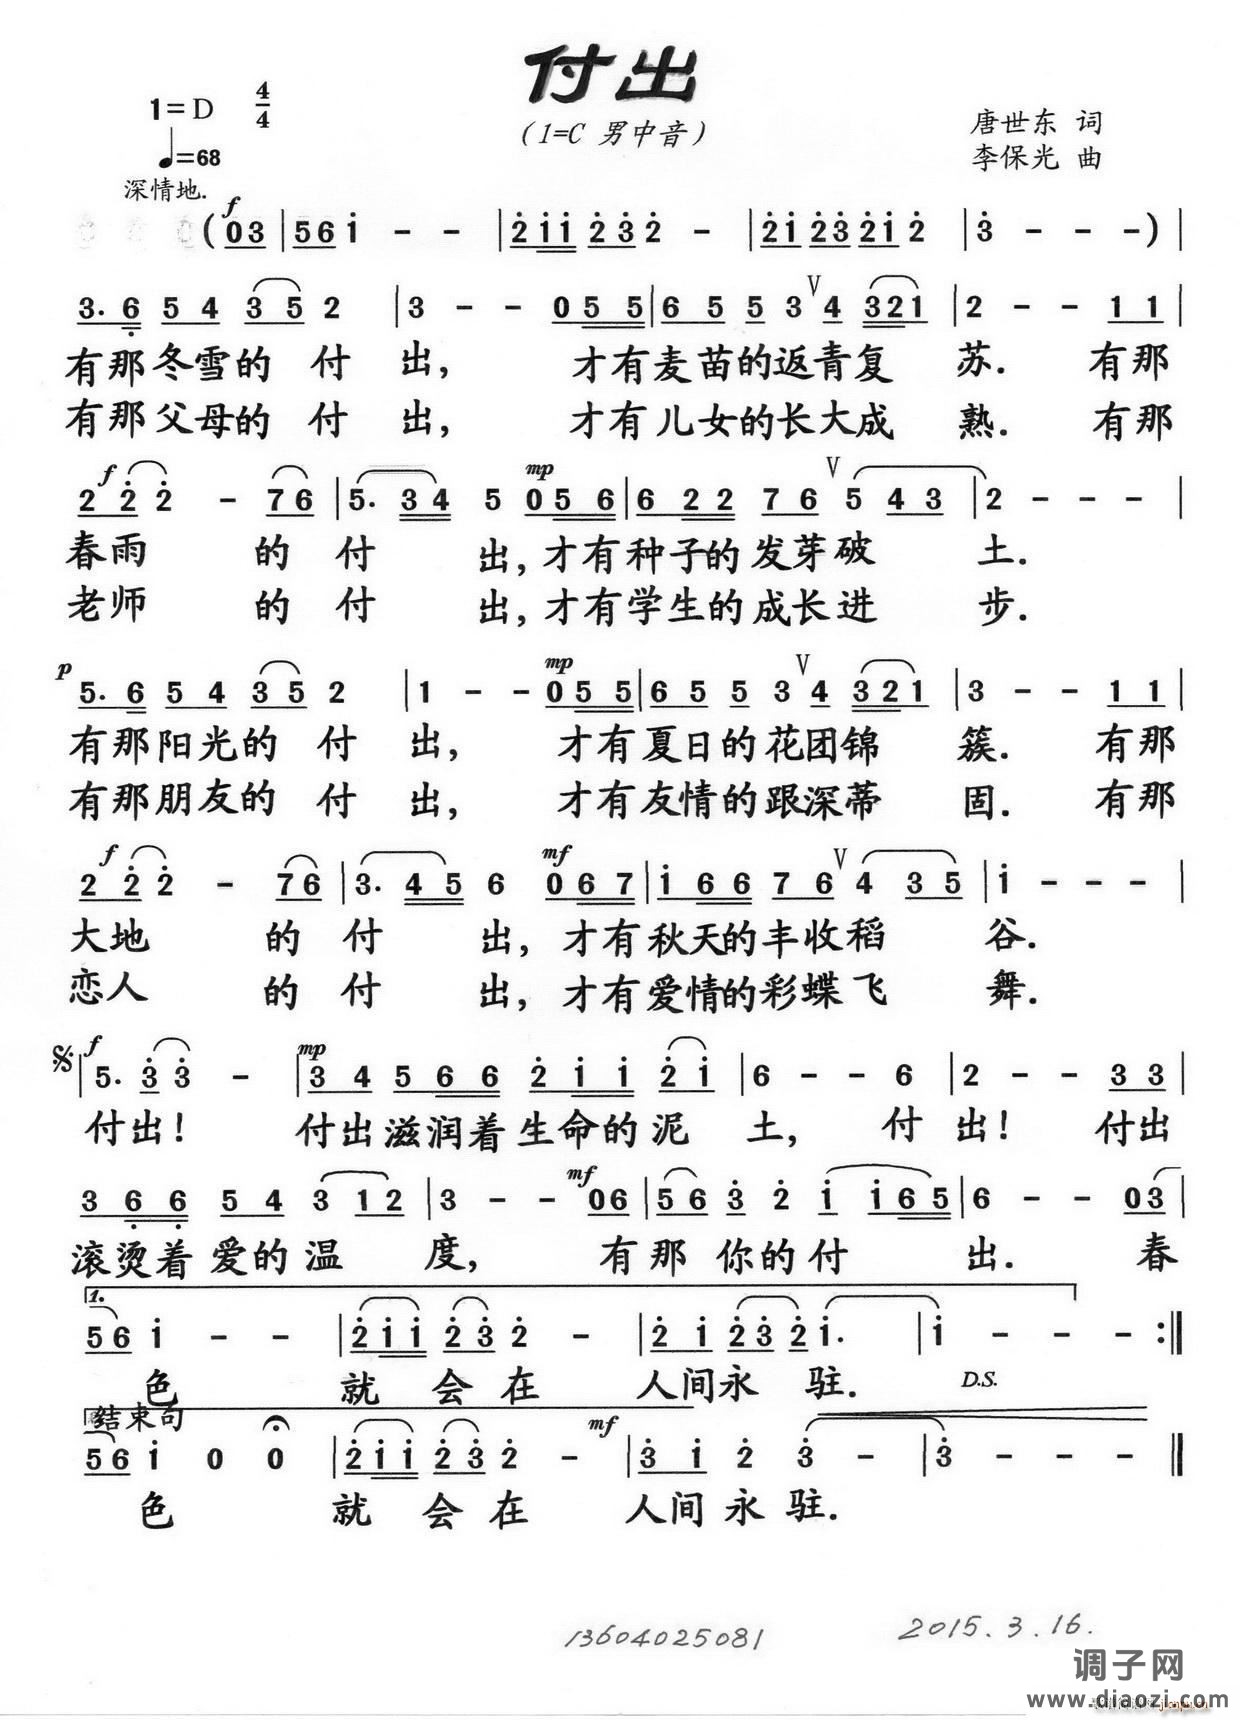 付出
1=D 4/4
(1=C 男中音)
♩=68
唐世东 词
李保光 曲
深情地.
f
(03|561 - -|211 232 -|2123212|3 - - -)|
3.6 54 35 2|3 - - 055|655 3 V 4 321|2 - - 11|
有那冬雪的 付 出, 才有麦苗的返青复 苏. 有那
有那父母的 付 出, 才有儿女的长大成 熟. 有那
f mp
22 2 - 76|5. 34 5 056|622 76 V 5 43|2 - - -|
春雨 的 付 出,才有种子的发芽破 土.
老师 的 付 出,才有学生的成长进 步.
p mp
5.6 54 35 2|1 - - 055|655 3 V 4 321|3 - - 11|
有那阳光的 付 出, 才有夏日的花团锦 簇. 有那
有那朋友的 付 出, 才有友情的跟深蒂 固. 有那
f mf
22 2 - 76|3. 45 6 067|166 76 V 4 35|1 - - -|
大地 的 付 出,才有秋天的丰收稻 谷.
恋人 的 付 出,才有爱情的彩蝶飞 舞.
f mp
|5. 3 3 -|34 566 211 21|6 - - 6|2 - - 33|
付出! 付出滋润着生命的泥 土, 付 出! 付出
mf
366 54 3 12|3 - - 06|56 3 2 1 165|6 - - 03|
滚烫着爱的温 度, 有那 你的付 出. 春
1.
56 1 - -|211 23 2 -|21 232 1.|1 - - - :|
色 就 会 在 人间永 驻. D.S.
结束句
mf
56 1 0 0|211 23 2 -|31 2 3 -|3 - - -|
色 就 会 在 人间永 驻.
13604025081
2015.3.16.
调子网
www.diaozi.com